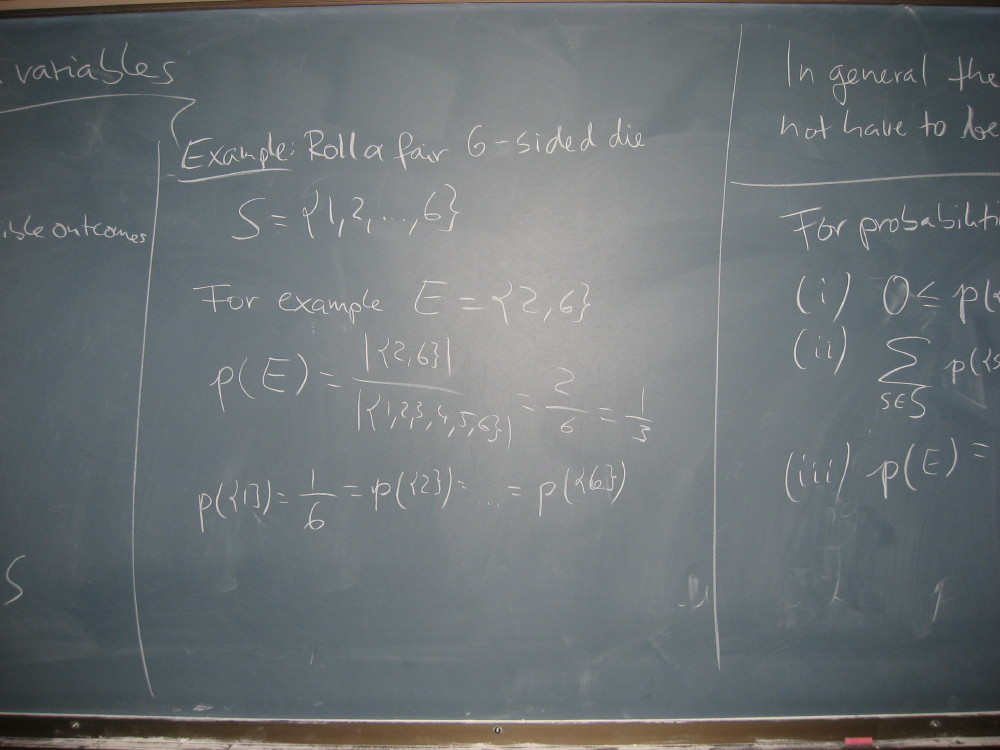 variables
outcomes
S
Example: Roll a fair 6-sided die
S = {1,2,...,6}
For example E = {2,6}
p(E) = |{2,6}| / |{1,2,3,4,5,6}| = 2/6 = 1/3
p({1}) = 1/6 = p({2}) = ... = p({6})
In general the
not have to be
For probabiliti
(i) 0 ≤ p(
(ii) ∑ s∈S p({s
(iii) p(E) =